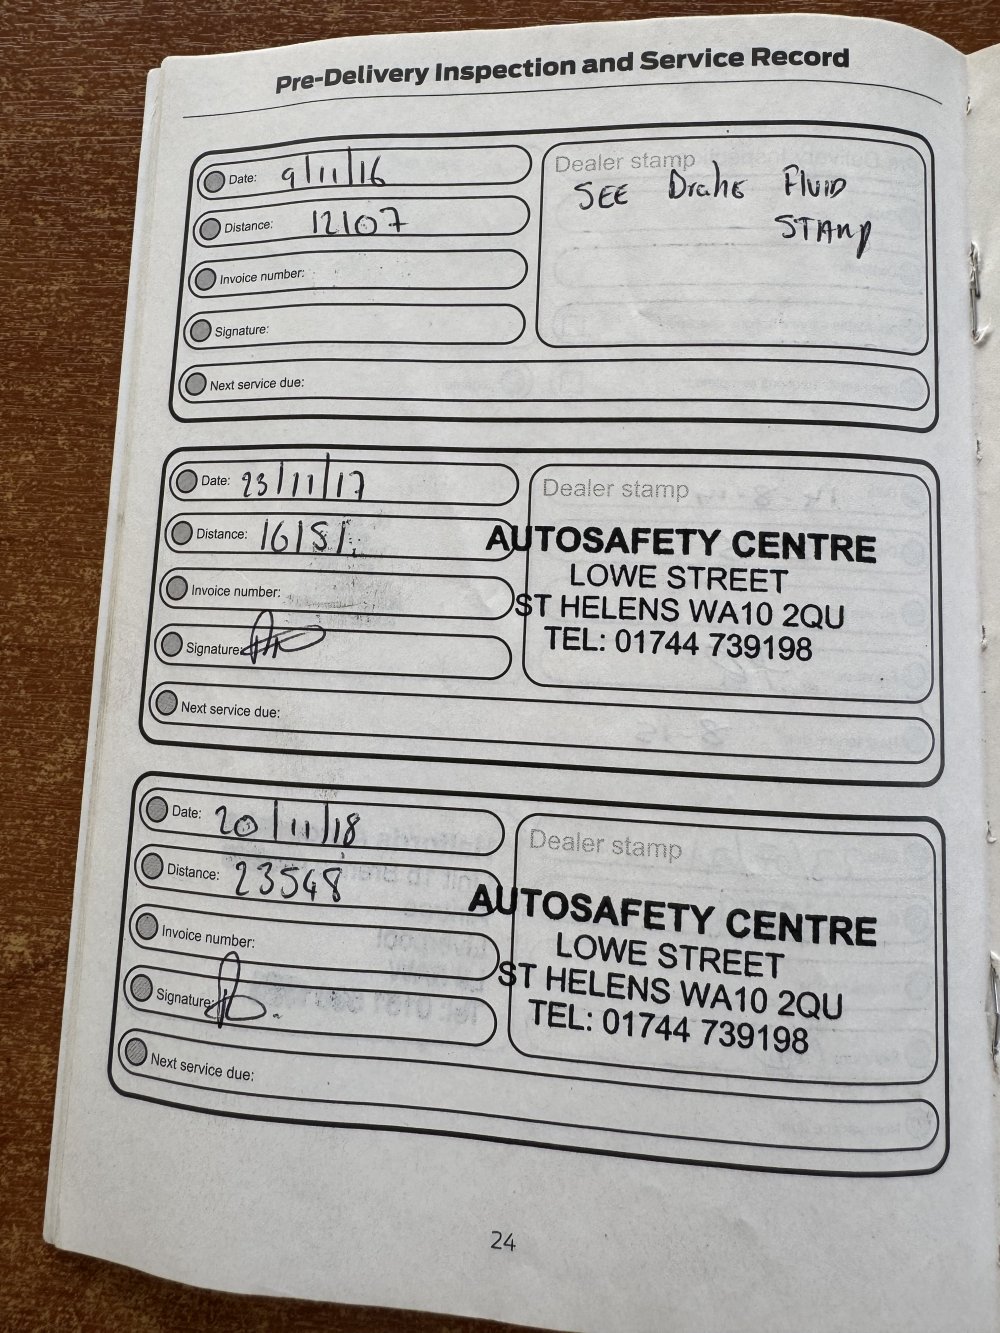 Pre-Delivery Inspection and Service Record
Date: 9/11/16
Distance: 12107
Invoice number:
Signature:
Next service due:
Dealer stamp
SEE Brake Fluid
STAMP
Date: 23/11/17
Distance: 16151.
Invoice number:
Signature:
Next service due:
Dealer stamp
AUTOSAFETY CENTRE
LOWE STREET
ST HELENS WA10 2QU
TEL: 01744 739198
Date: 20/11/18
Distance: 23548
Invoice number:
Signature:
Next service due:
Dealer stamp
AUTOSAFETY CENTRE
LOWE STREET
ST HELENS WA10 2QU
TEL: 01744 739198
24